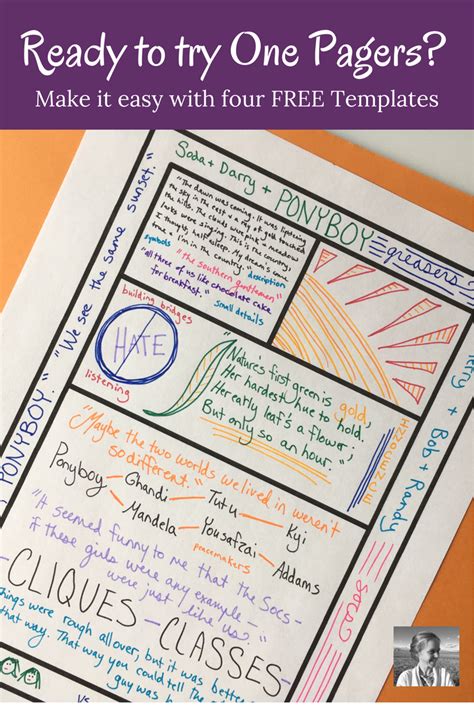 Ready to try One Pagers?
Make it easy with four FREE Templates
Soda + Darry + PONYBOY
greasers
"The dawn was coming. It was lightening
the sky in the east + a ray of gold touched
the hills. The clouds were pink + meadow
larks were singing. This is the country,
I thought, half asleep. My dream's come
true + I'm in the country."
symbols
"the southern gentlemen"
description
"all three of us like chocolate cake
for breakfast."
small details
PONYBOY: "We see the same sunset."
building bridges
HATE
listening
"Nature's first green is gold,
Her hardest hue to hold.
Her early leaf's a flower;
But only so an hour."
+ Bob + Randy
socs
"Maybe the two worlds we lived in weren't
so different."
Ponyboy Ghandi Tutu Kyi
Mandela Yousafzai Addams
peacemakers
"It seemed funny to me that the Socs-
if these girls were any example-
were just like us."
CLIQUES - CLASSES
things were rough all over, but it was better
that way. That way you could tell the
guy was
VS